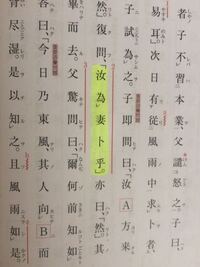 者、子不習本業、父譴怒之。子曰、
易耳。次日有従風雨中求卜者、
子試為之。子即問曰、「汝 A 方来
然。」復問、「汝為妻卜乎。」亦曰、「然。」其
畢而去。父驚問曰、「爾何前知如
答曰、「今日乃東風、其人向 B 而
肩尽湿。是以知之。且風雨如是。